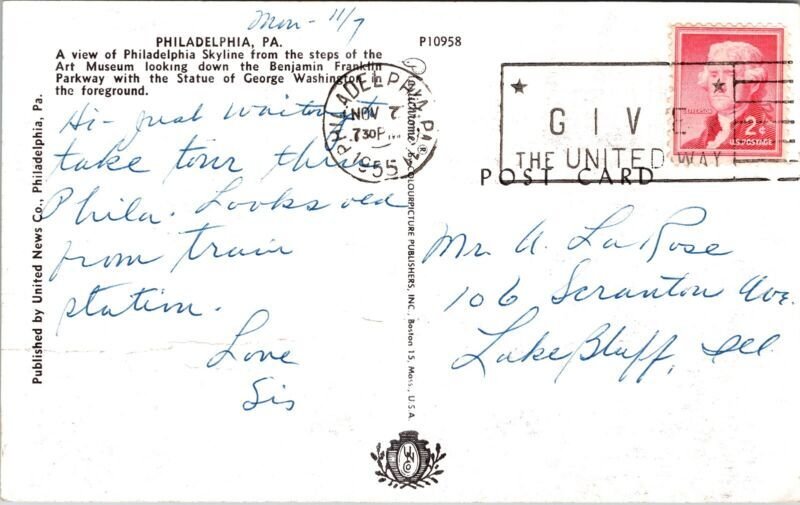 Mon- 11/7
PHILADELPHIA, PA.
A view of Philadelphia Skyline from the steps of the
Art Museum looking down the Benjamin Franklin
Parkway with the Statue of George Washington in
the foreground.
Hi- just waiting to
take tour thru
Phila. Looks old
from train
station.
Love
Sis
Published by United News Co., Philadelphia, Pa.
P10958
PHILADELPHIA, PA.
NOV 7
7 30 PM
1955
Plastichrome ® by COLOURPICTURE PUBLISHERS, INC., Boston 15, Mass., U.S.A.
GIVE
THE UNITED WAY
JEFFERSON
2¢
U.S. POSTAGE
POST CARD
Mr. A. La Rose
106 Scranton Ave.
Lake Bluff, Ill
UN
Co